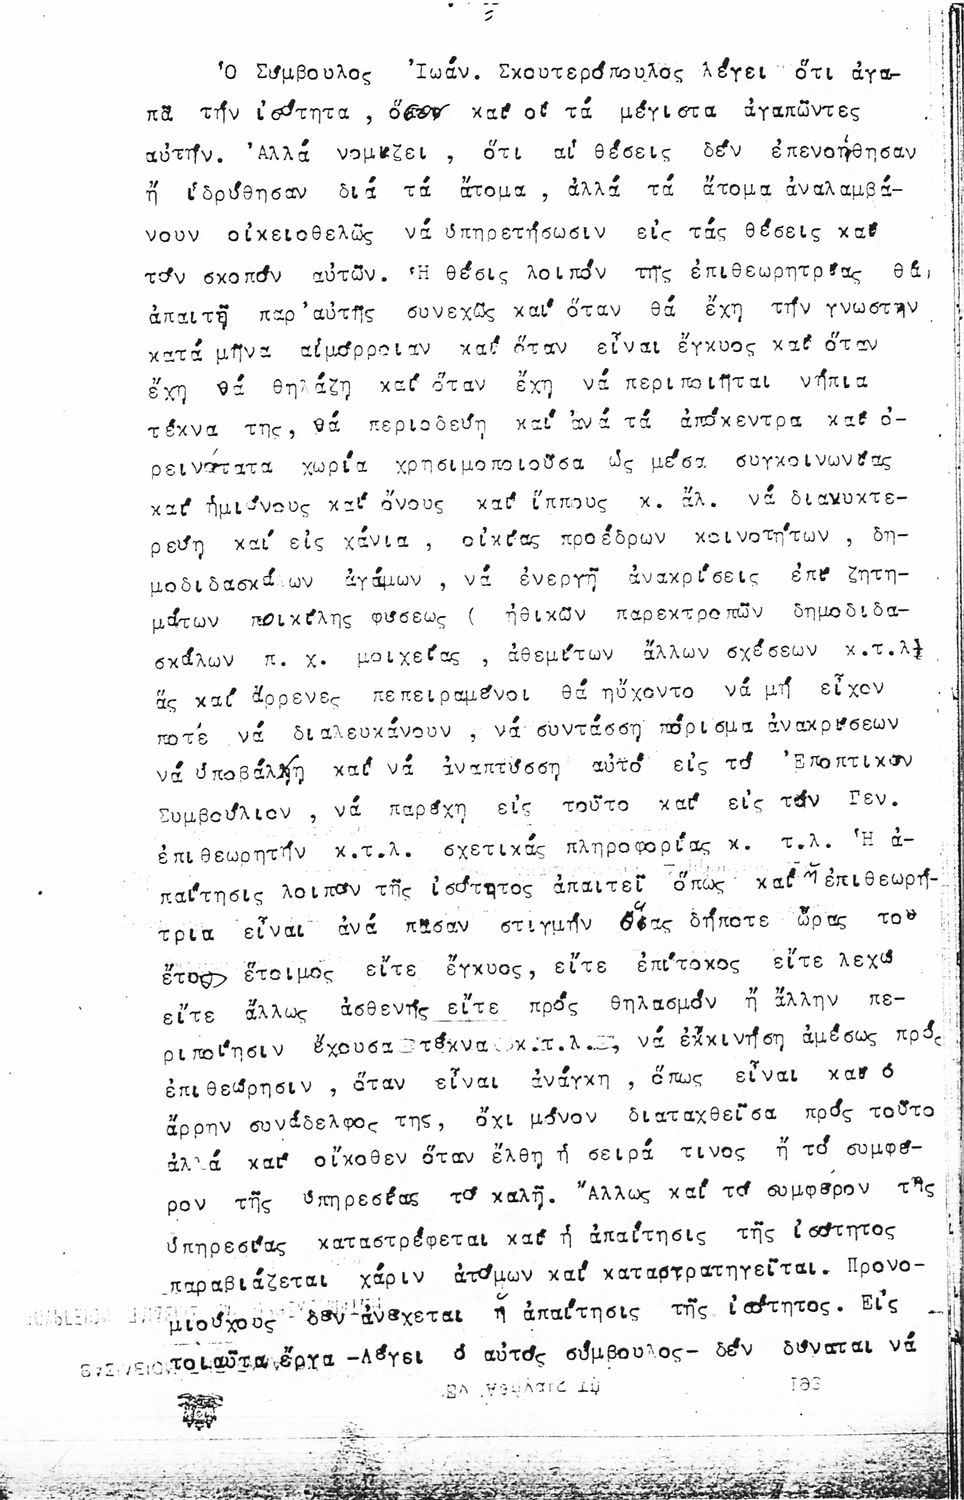 Ὁ Σύμβουλος Ἰωάν. Σκουτερόπουλος λέγει ὅτι ἀγα-
πᾶ τήν ἰσότητα , ὅσον καί οἱ τά μέγιστα ἀγαπῶντες
αὐτήν. Ἀλλά νομίζει , ὅτι αἱ θέσεις δέν ἐπενοήθησαν
ἤ ἱδρύθησαν διά τά ἄτομα , ἀλλά τά ἄτομα ἀναλαμβά-
νουν οἰκειοθελῶς νά ὑπηρετήσωσιν εἰς τάς θέσεις καί
τόν σκοπόν αὐτῶν. Ἡ θέσις λοιπόν τῆς ἐπιθεωρητρίας θά
ἀπαιτῇ παρ'αὐτῆς συνεχῶς καί ὅταν θά ἔχη τήν γνωστήν
κατά μῆνα αἱμόρροιαν καί ὅταν εἶναι ἔγκυος καί ὅταν
ἔχη νά θηλάζη καί ὅταν ἔχη νά περιποιῆται νήπια
τέκνα της, νά περιοδεύη καί ἀνά τά ἀπόκεντρα καί ὀ-
ρεινότατα χωρία χρησιμοποιοῦσα ὡς μέσα συγκοινωνίας
καί ἡμιόνους καί ὄνους καί ἵππους κ. ἄλ. νά διανυκτε-
ρεύη καί εἰς χάνια , οἰκίας προέδρων κοινοτήτων , δη-
μοδιδασκάλων ἀγάμων , νά ἐνεργῇ ἀνακρίσεις ἐπί ζητη-
μάτων ποικίλης φύσεως ( ἠθικῶν παρεκτροπῶν δημοδιδα-
σκάλων π. χ. μοιχείας , ἀθεμίτων ἄλλων σχέσεων κ.τ.λ)
ἅς καί ἄρρενες πεπειραμένοι θά ηὔχοντο νά μή εἶχον
ποτέ νά διαλευκάνουν , νά συντάσση πόρισμα ἀνακρίσεων
νά ὑποβάλλη καί νά ἀναπτύσση αὐτό εἰς τό Ἐποπτικόν
Συμβούλιον , νά παρέχη εἰς τοῦτο καί εἰς τόν Γεν.
ἐπιθεωρητήν κ.τ.λ. σχετικάς πληροφορίας κ. τ.λ. Ἡ ἀ-
παίτησις λοιπόν τῆς ἰσότητος ἀπαιτεῖ ὅπως καί ἡ ἐπιθεωρή-
τρια εἶναι ἀνά πᾶσαν στιγμήν οἵας δήποτε ὥρας τοῦ
ἔτους ἕτοιμος εἴτε ἔγκυος, εἴτε ἐπίτοκος εἴτε λεχώ
εἴτε ἄλλως ἀσθενής εἴτε πρός θηλασμόν ἤ ἄλλην πε-
ριποίησιν ἔχουσα τέκνα κ.τ.λ. , νά ἐκκινήση ἀμέσως πρός
ἐπιθεώρησιν , ὅταν εἶναι ἀνάγκη , ὅπως εἶναι καί ὁ
ἄρρην συνάδελφος της, ὄχι μόνον διαταχθεῖσα πρός τοῦτο
ἀλλά καί οἴκοθεν ὅταν ἔλθη ἡ σειρά τινος ἤ τό συμφέ-
ρον τῆς ὑπηρεσίας τό καλῇ. Ἄλλως καί τό συμφέρον τῆς
ὑπηρεσίας καταστρέφεται καί ἡ ἀπαίτησις τῆς ἰσότητος
παραβιάζεται χάριν ἀτόμων καί καταστρατηγεῖται. Προνο-
μιούχους δέν ἀνέχεται ἡ ἀπαίτησις τῆς ἰσότητος. Εἰς
τοιαῦτα ἔργα -Λέγει ὁ αὐτός σύμβουλος- δέν δύναται νά